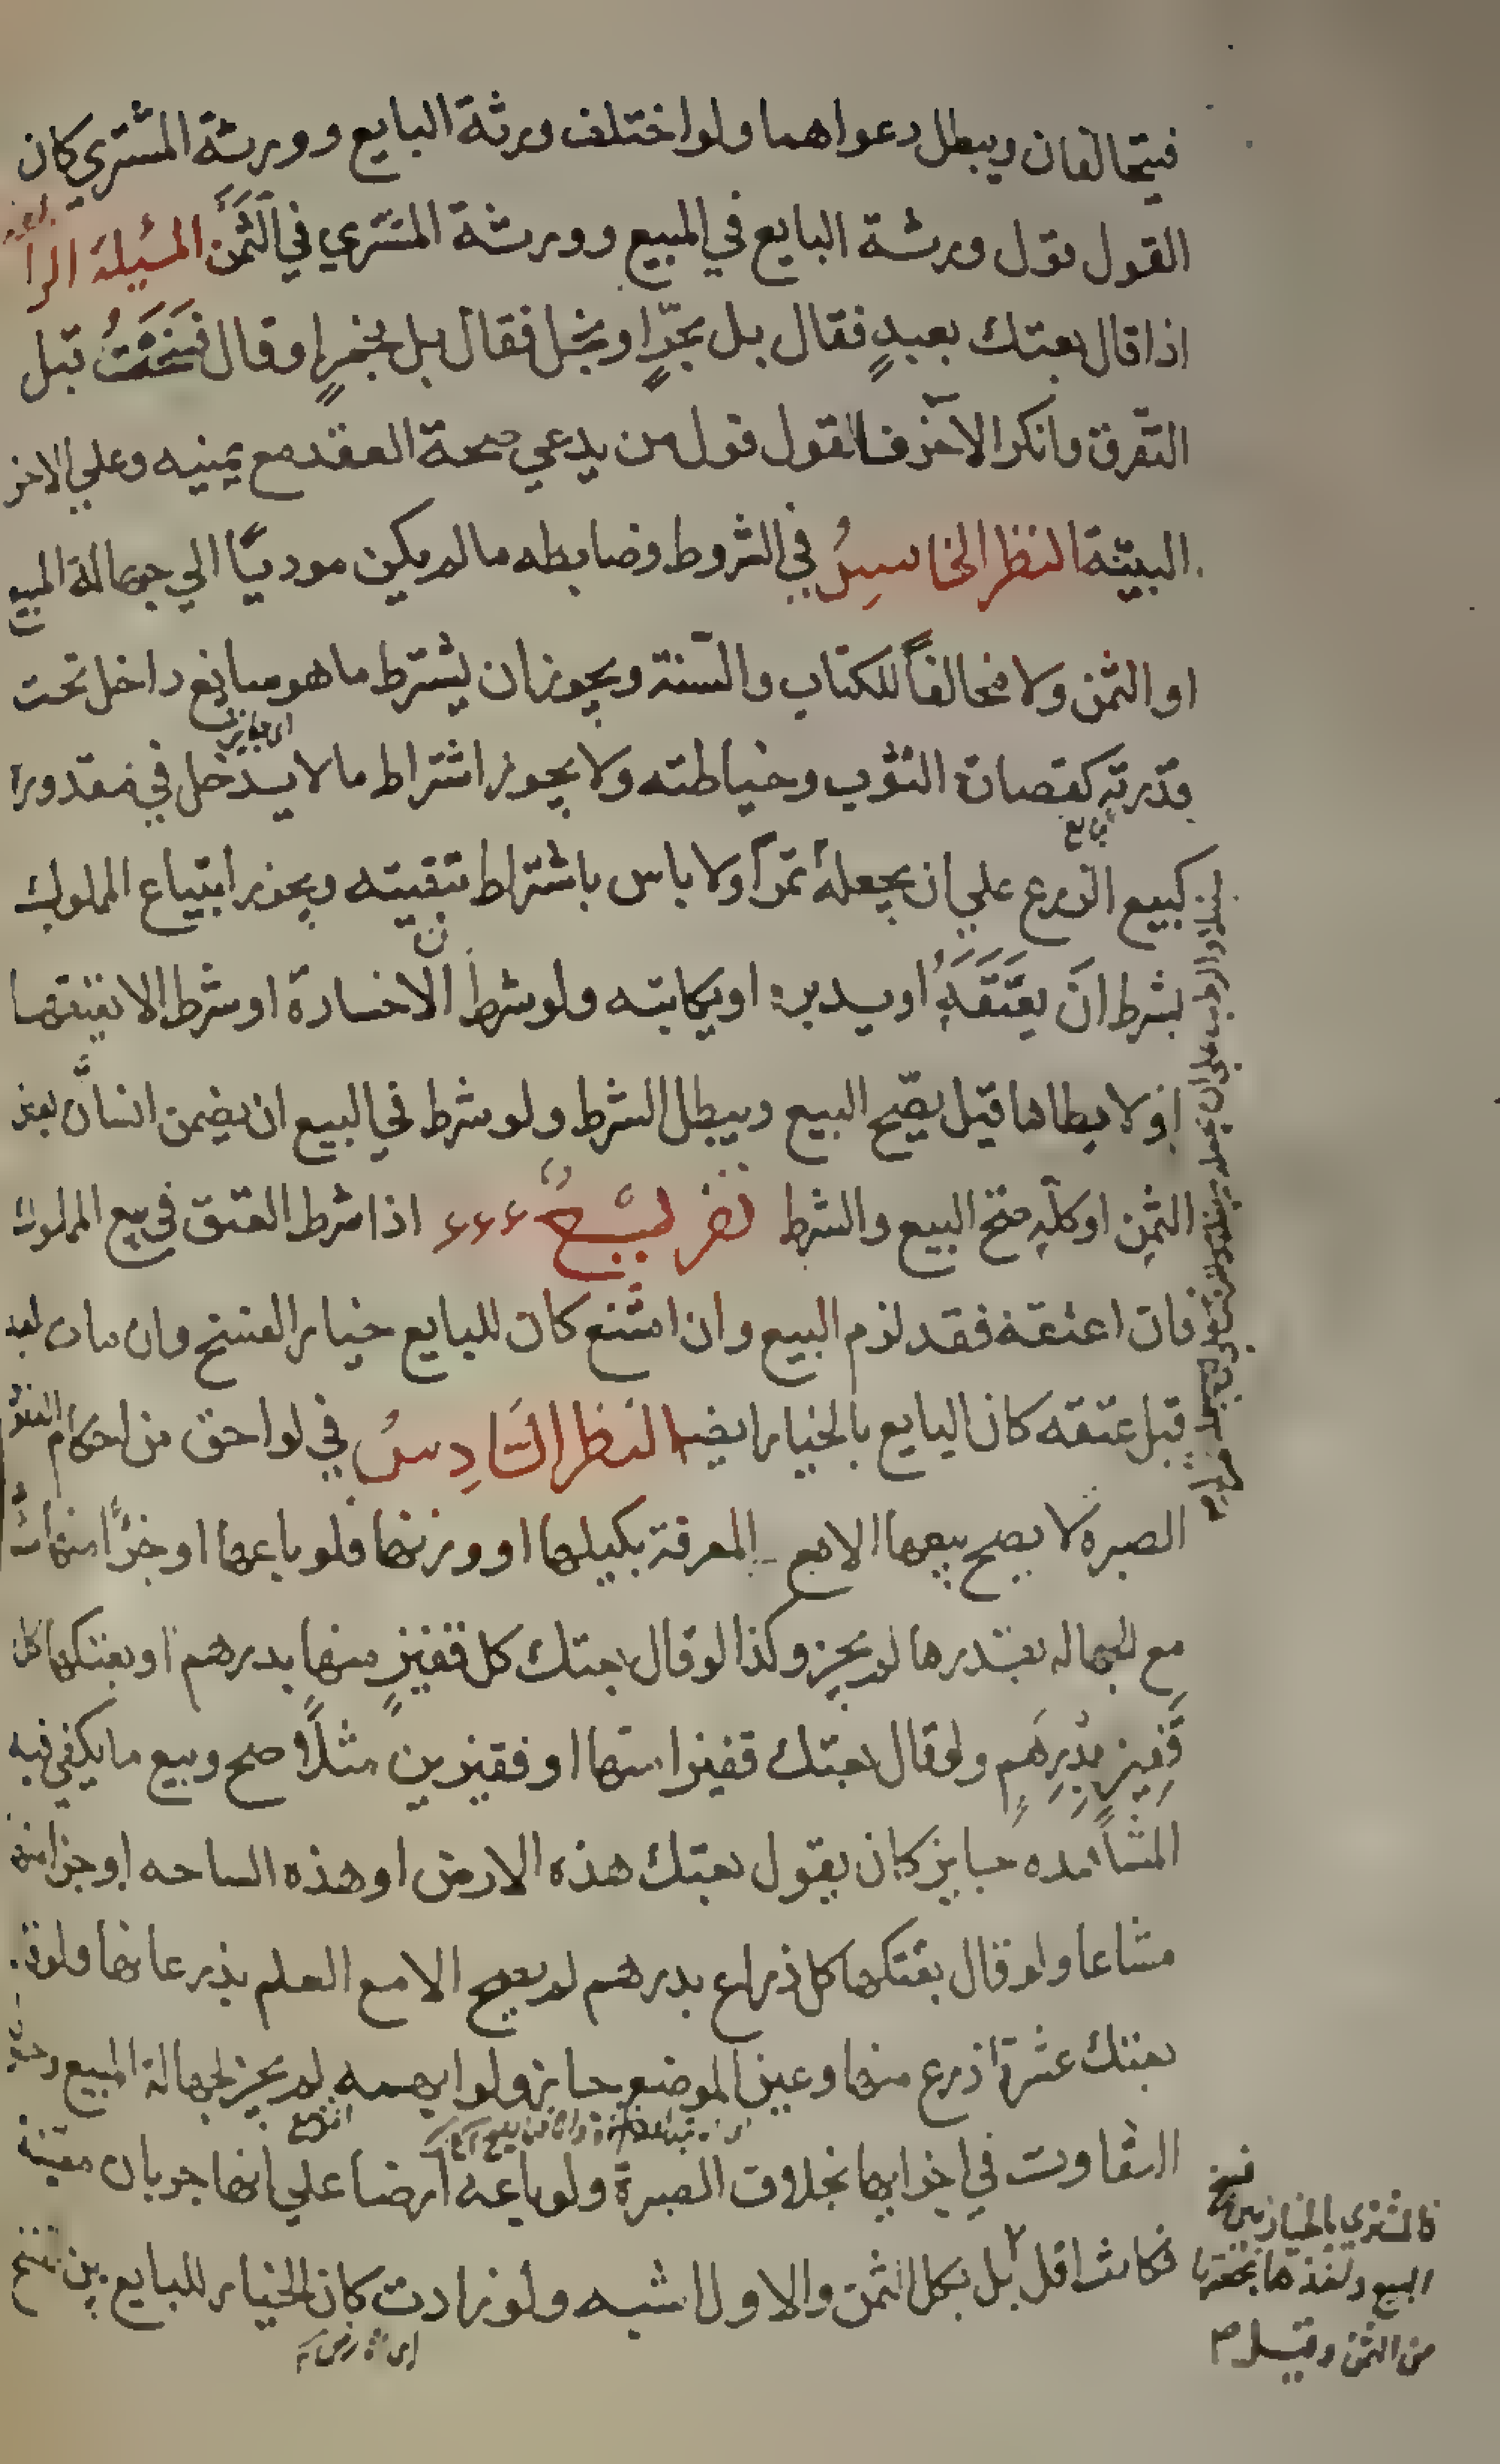 فيتحالفان ويبطل دعواهما ولو اختلف ورثة البايع وورثة المشتري كان
القول قول ورثة البايع في المبيع وورثة المشتري في الثمن المسئلة الرا
اذا قال بعتك بعبدٍ فقال بل بحرٍّ او بخل فقال بل بخمرٍ او قال فسخت قبل
التفرق وانكر الآخر فالقول قول من يدعي صحة العقد مع يمينه وعلي الاخر
البينة النظر الخامسُ في الشروط وضابطه ما لم يكن موديًا الي جهالة المبيع
او الثمن ولا مخالفاً للكتاب والسنة ويجوز ان يشترط ما هو سايغ داخل تحت
اى جايز
قدرته كقصارة الثوب وخياطته ولا يجوز اشتراط ما لا يدخل في مقدوره
كبيع الزرع علي ان يجعله تمرًا ولا باس باشتراط تبقيته ويجوز ابتياع المملوك
بشرط ان يعتقه او يدبره او يكاتبه ولو شرط الا خسارة او شرط الا يعتقها
او لا يطاها قيل يصح البيع ويبطل الشرط ولو شرط في البيع ان يضمن انسان بعض
الثمن او كله صح البيع والشرط تفريعٌ اذا شرط العتق في بيع المملوك
فان اعتقه فقد لزم البيع وان امتنع كان للبايع خيار الفسخ وان مات العبد
قبل عتقه كان البايع بالخيار ايضا النظر السَّادِسُ في لواحق من احكام العقود
الصبره لا يصح بيعها الا مع المعرفة بكيلها او وزنها فلو باعها او جزًا منها
مع الجهاله بقدرها لم يجز وكذا لو قال بعتك كل قفيزٍ منها بدرهم او بعتكها كل
قفيز بدرهم ولو قال بعتك قفيزا منها او قفيزين مثلًا صح وبيع ما يكفي فيه
المشاهده جايز كان يقول بعتك هذه الارض او هذه الساحه او جزا منها
مشاعا ولو قال بعتكها كل ذراع بدرهم لم يصح الا مع العلم بذرعانها ولو قا
بعتك عشرة اذرع منها وعين الموضع جاز ولو ابهمه لم يجز لجهالة المبيع وحصول
التفاوت في اجزايها بخلاف الصبرة ولو باعه ارضا علي انها جربان معينة
فكانت اقل
فالمشتري بالخيار بين فسخ
البيع واخذها بحصتها
من الثمن وقيل
بل بكل الثمن والاول اشبه ولو زادت كان الخيار للبايع بين فسخ